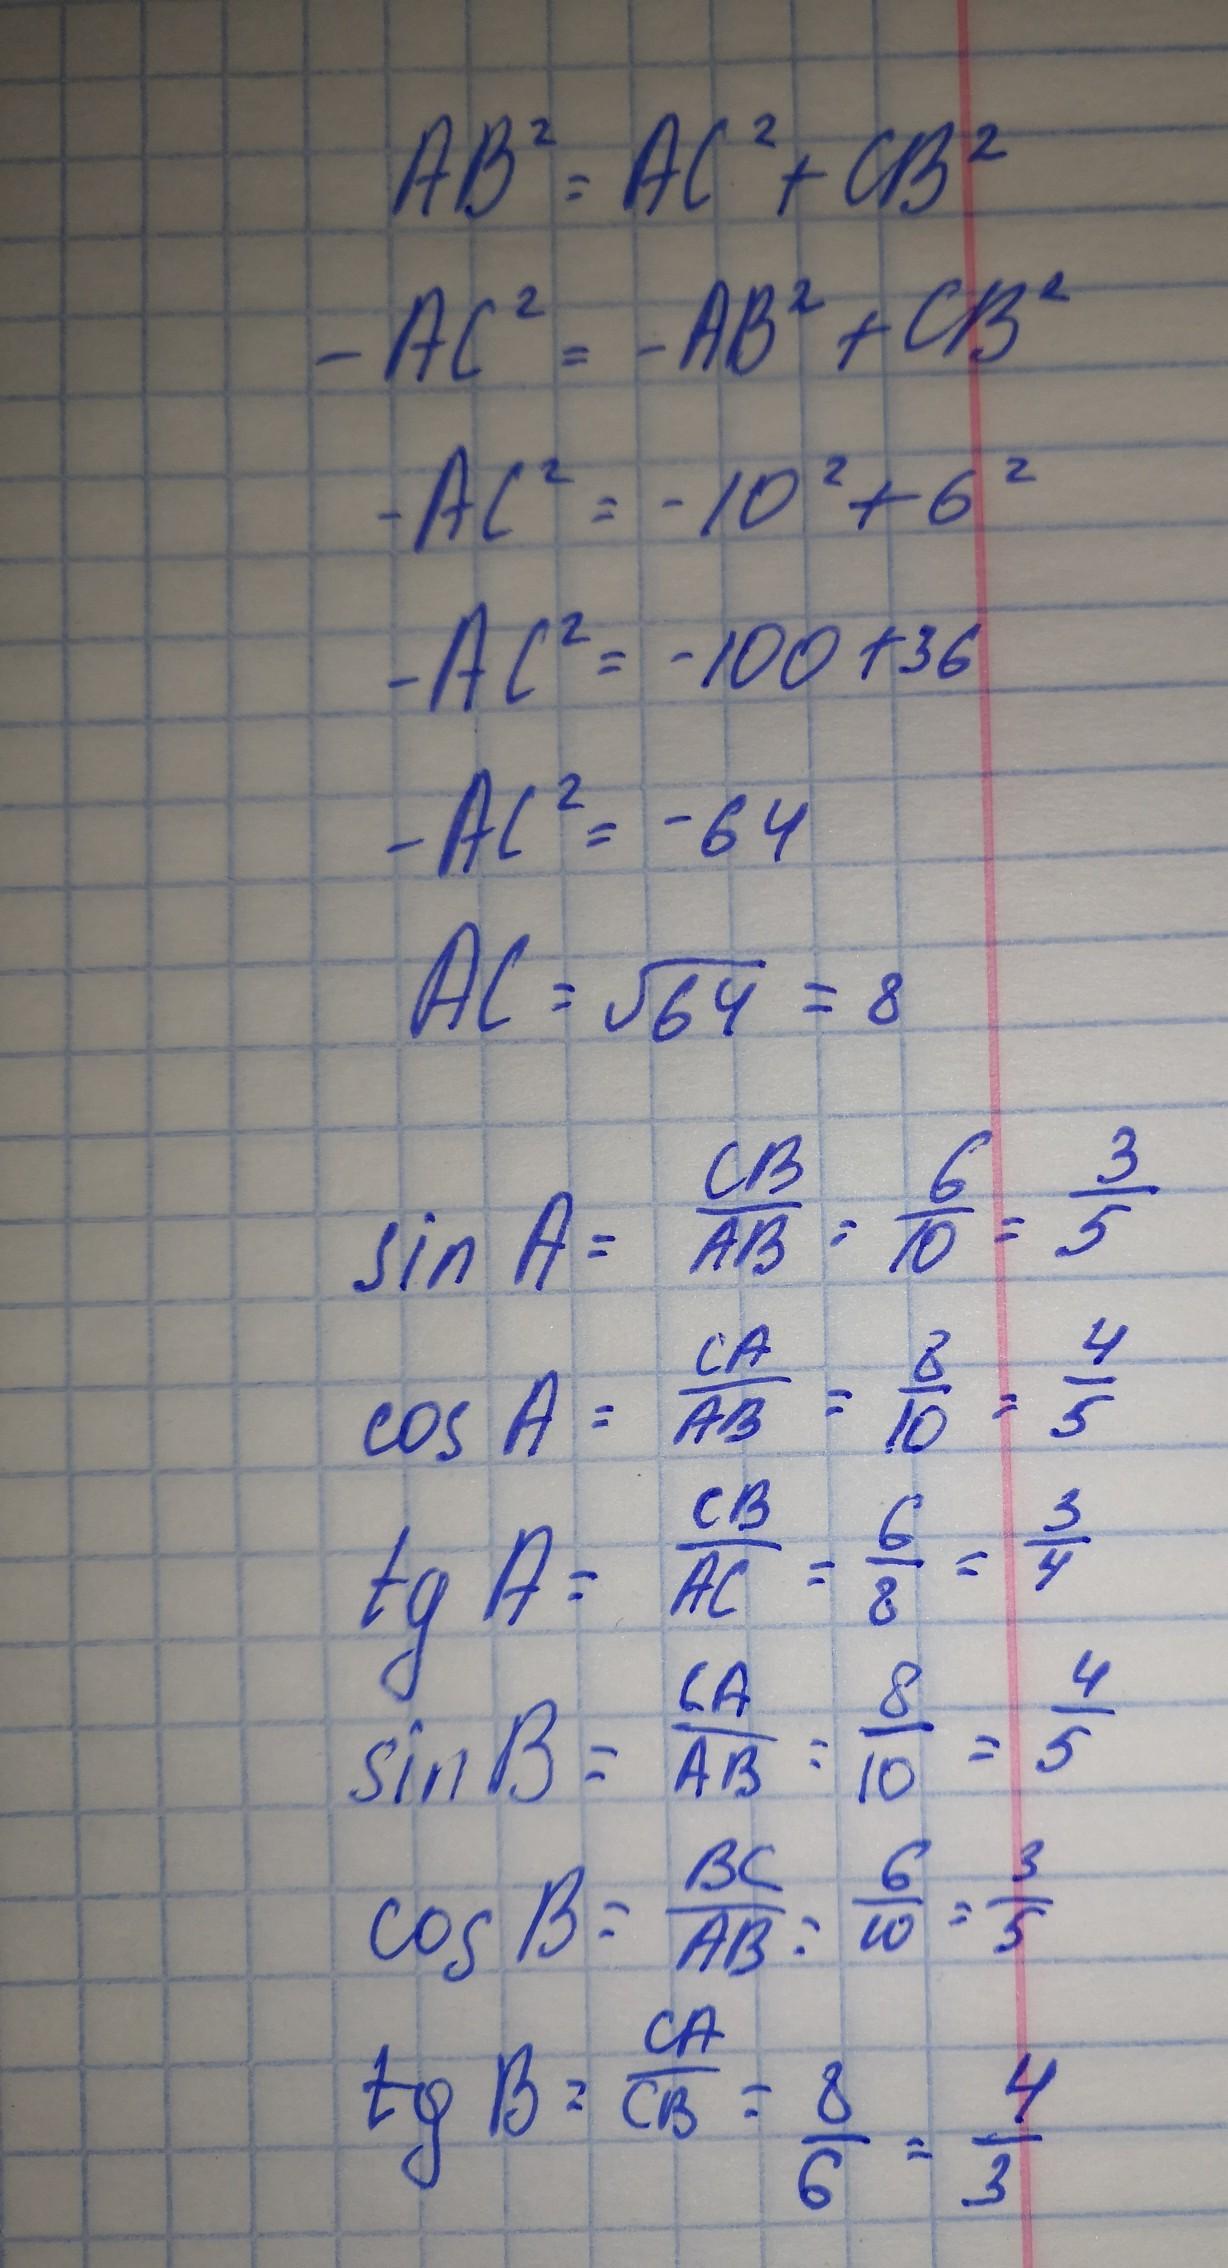 AB² = AC² + CB²
-AC² = -AB² + CB²
-AC² = -10² + 6²
-AC² = -100 + 36
-AC² = -64
AC = √64 = 8
sin A = CB/AB = 6/10 = 3/5
cos A = CA/AB = 8/10 = 4/5
tg A = CB/AC = 6/8 = 3/4
sin B = CA/AB = 8/10 = 4/5
cos B = BC/AB = 6/10 = 3/5
tg B = CA/CB = 8/6 = 4/3